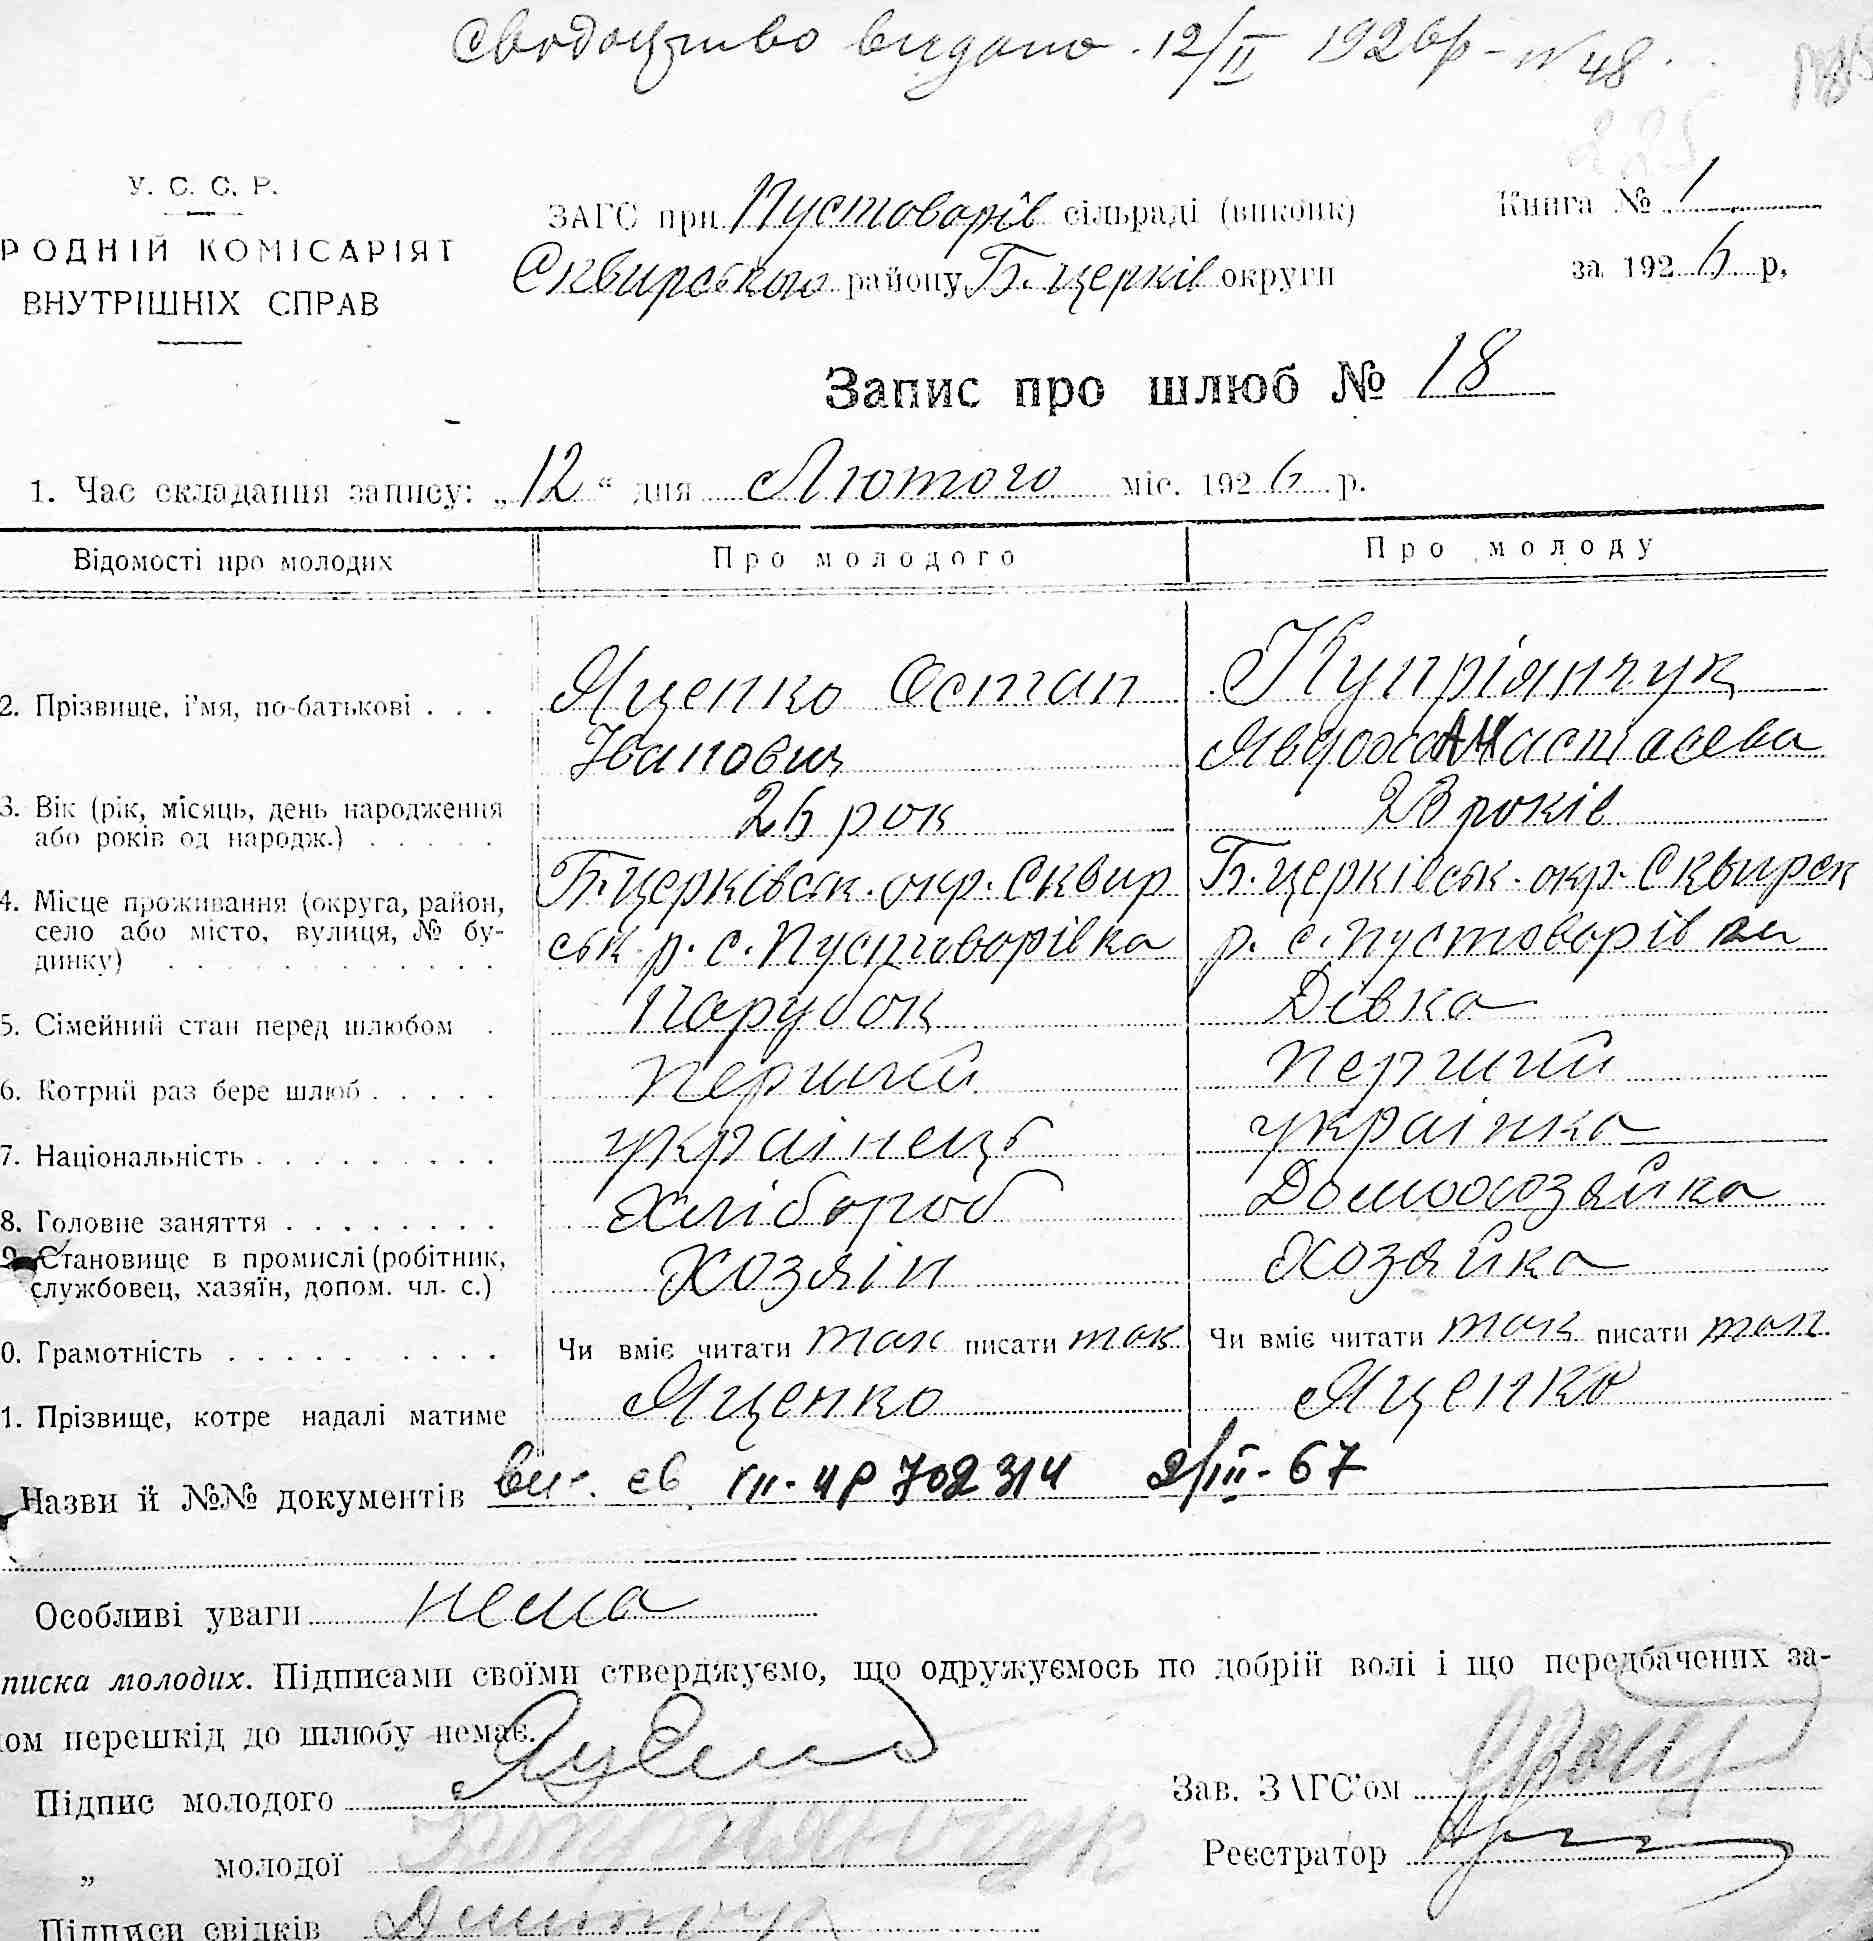 Сводоцтво видано. 12/II 1926р - № 48.
225
У. С. С. Р.
ЗАГС при Пустоворів сільраді (виконк) Книга № 1
РОДНІЙ КОМІСАРІЯТ
Сквирськом району Б. церків округи за 1926 р,
ВНУТРІШНІХ СПРАВ
Запис про шлюб № 18
1. Час складання запису: „12“ дня Лютого міс. 1926 р.
Відомості про молодих Про молодого Про молоду
Яценко Остап Купріянчук
2. Прізвище, і'мя, по-батькові . . .
Іванович Явдоха Анастасева
3. Вік (рік, місяць, день народження 26 рок 23 років
або років од народж.) . . . . .
Б. церківськ. окр. Сквир Б. церківськ. окр. Сквирск
4. Місце проживання (округа, район,
село або місто, вулиця, № бу- ськ. р. с. Пустоворівка р. с. Пустоворівки
динку) . . . . . . . . . . .
5. Сімейний стан перед шлюбом . Парубок Дівка
6. Котрий раз бере шлюб . . . . . перший перший
7. Національність . . . . . . . . . українець украінка
8. Головне заняття . . . . . . . . Хлібороб Домохозяйка
9. Становище в промислі (робітник, Хозяін хозяйка
службовец, хазяїн, допом. чл. с.)
0. Грамотність . . . . . . . . . Чи вміє читати так писати так Чи вміє читати так писати так
1. Прізвище, котре надалі матиме Яценко Яценко
Назви й №№ документів св 702314 2/III-67
Особливі уваги нема
писка молодих. Підписами своїми стверджуємо, що одружуємось по добрій волі і що передбачених за-
ом перешкід до шлюбу немає.
Підпис молодого Яценко Зав. ЗАГС'ом
„ молодої Купріянчук Реєстратор
Підписи свідків